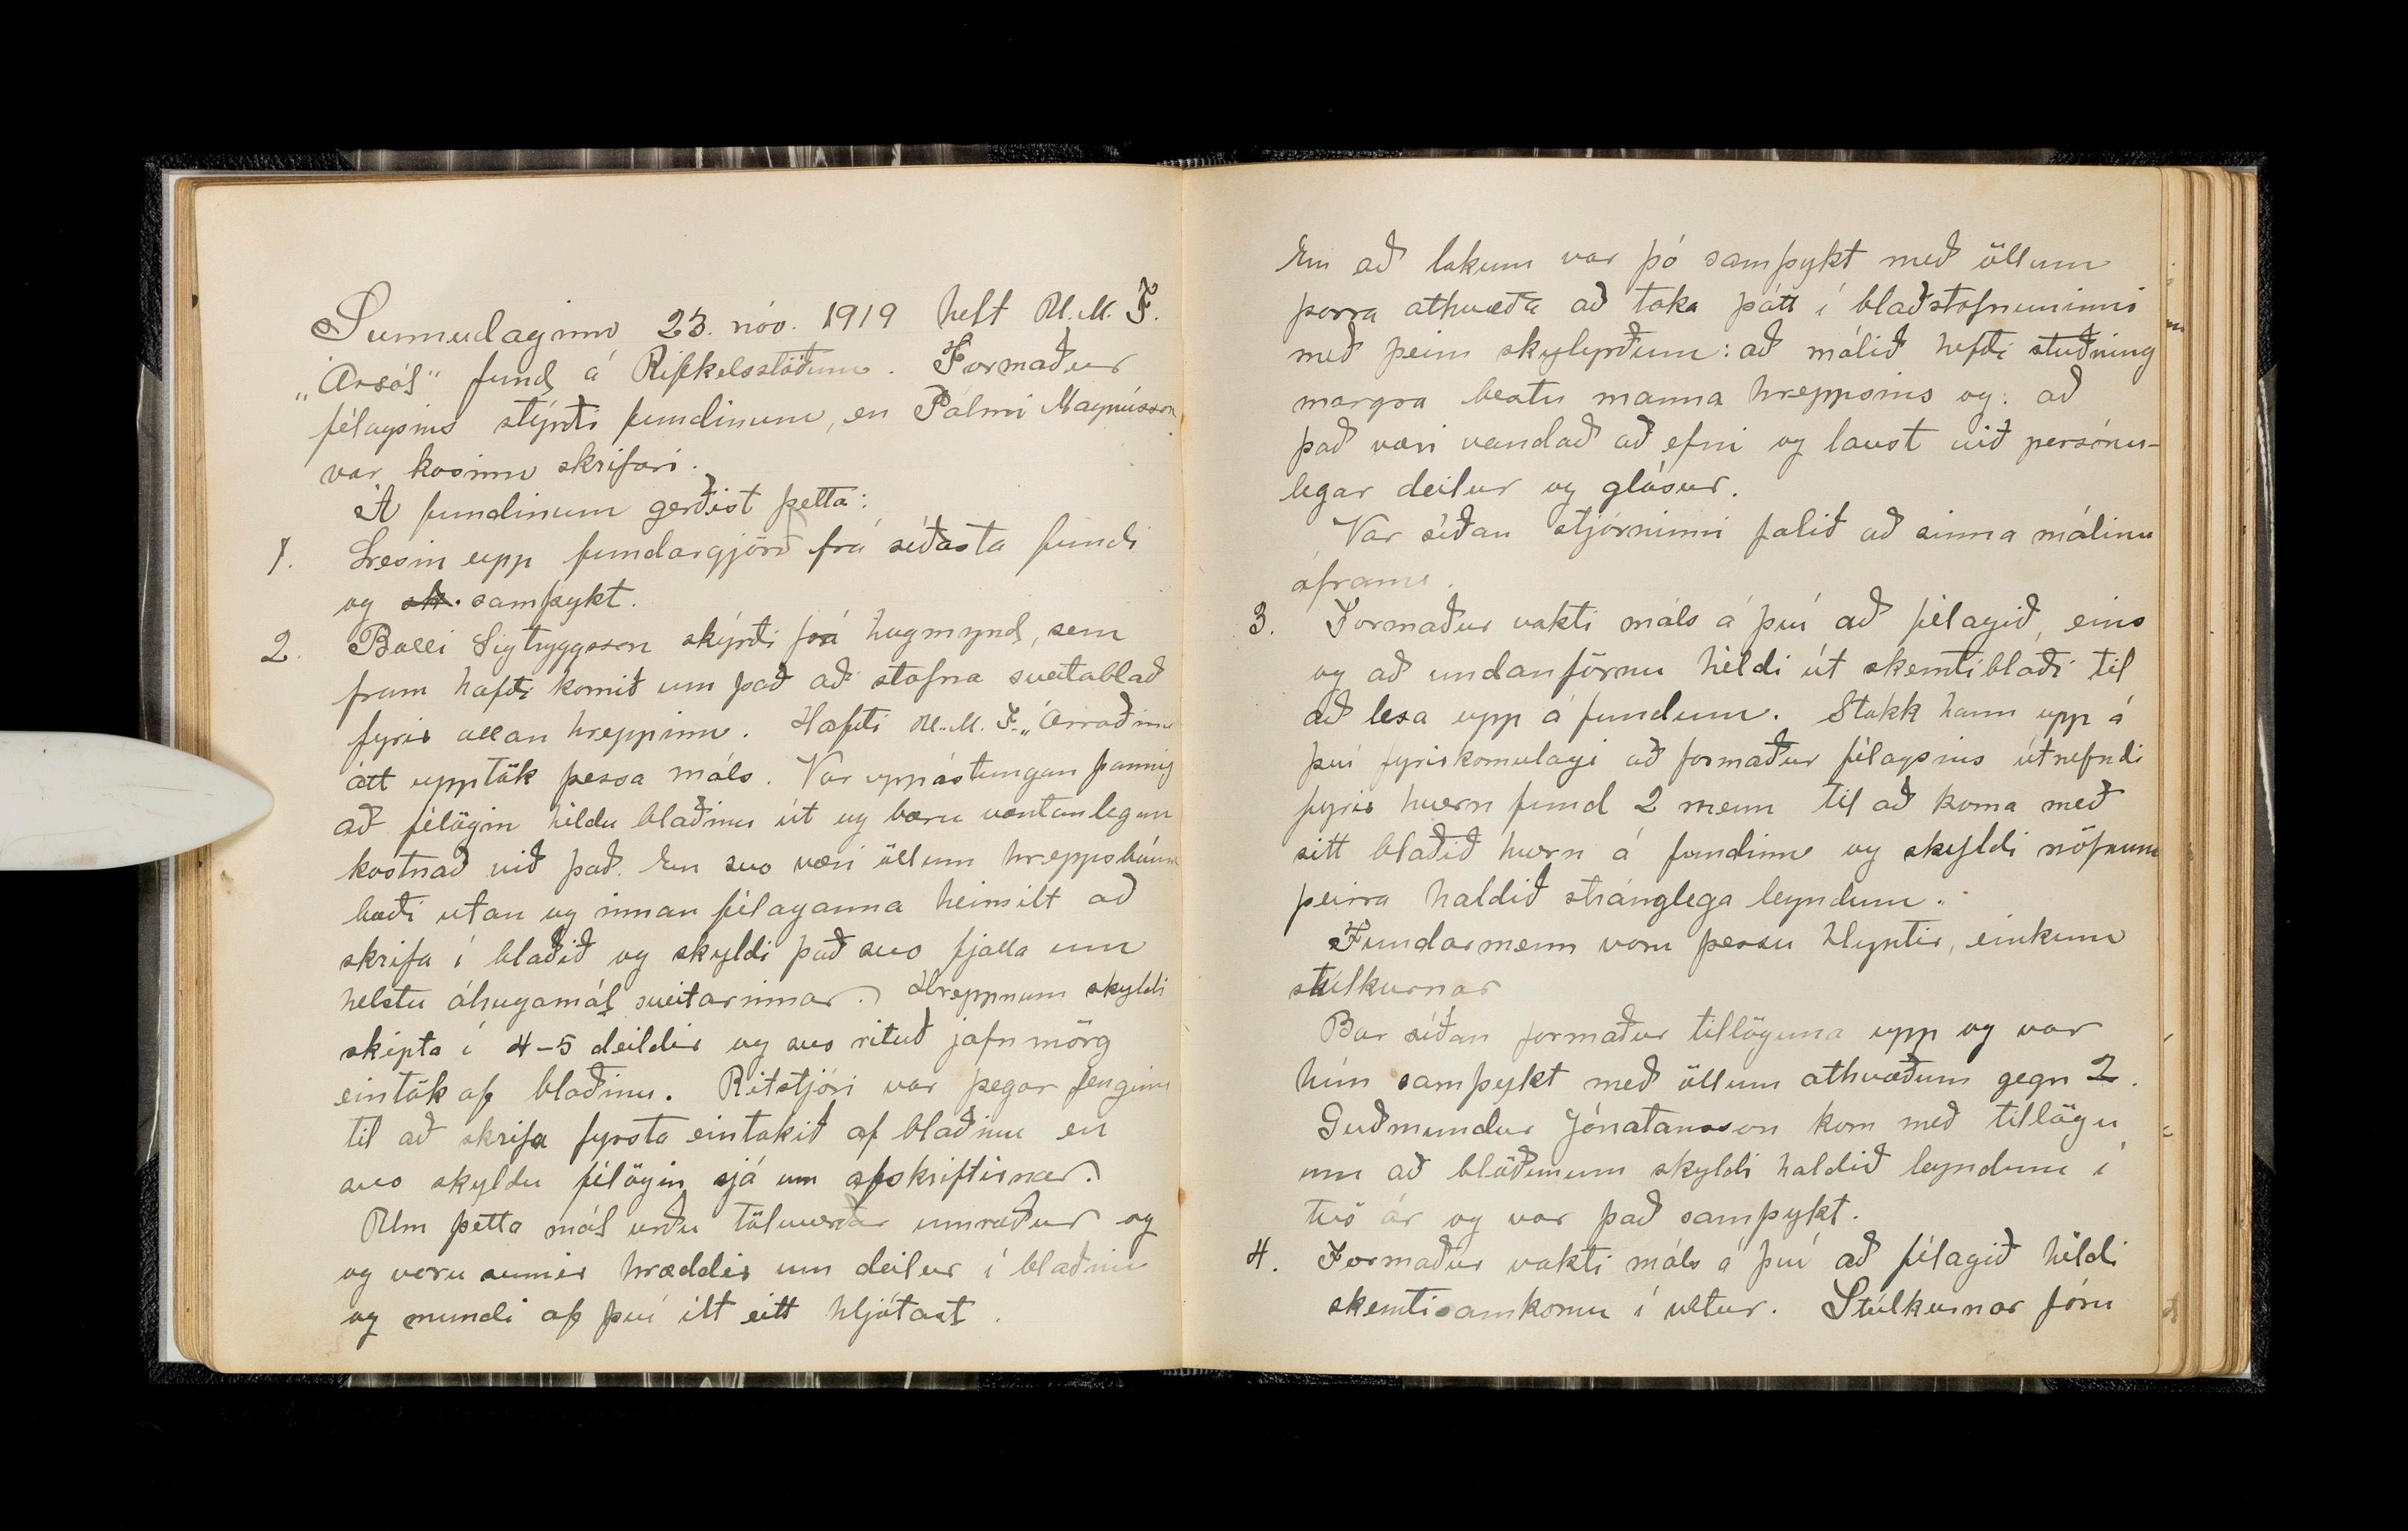 Sunnudaginn 23. nóv. 1919 helt U.M.F.
„Ársól" fund á Rifkelsstöðum. Formaður
félagsins stýrði fundinum, en Pálmi Magnússon
var kosinn skrifari.
Á fundinum gerðist þetta:
1. Lesin upp fundargjörð frá síðasta fundi
og sk. samþykt.
2. Balli Sigtryggsson skýrði frá hugmynd, sem
fram hafði komið um það að stofna sveitablað
fyrir allan hreppinn. Hafði U.M.F. „Árroðinn
átt upptök þessa máls. Var uppástungan þannig
að félögin héldu blaðinu út og bæru væntanlegan
kostnað við það. En svo væri öllum hreppsbúum
bæði utan og innan félaganna heimilt að
skrifa í blaðið og skyldi það svo fjalla um
helstu áhugamál sveitarinnar. Hreppnum skyldi
skipta í 4-5 deildir og svo rituð jafnmörg
eintök af blaðinu. Ritstjóri var þegar fenginn
til að skrifa fyrsta eintakið af blaðinu en
svo skyldu félögin sjá um afskriftirnar.
Um þetta mál urðu töluverðar umræður og
og voru sumir hræddir um deilur í blaðinu
og mundi af því ilt eitt hljótast.
En að lokum var þó samþykt með öllum
þorra athvæða að taka þátt í blaðstofnuninni
með þeim skylyrðum: að málið hefði stuðning
margra beztu manna hreppsins og: að
það væri vandað að efni og laust við persónu-
legar deilur og glósur.
Var síðan stjórninni falið að sinna málinu
áfram.
3. Formaður vakti máls á því að félagið, eins
og að undanförnu héldi út skemtiblaði til
að lesa upp á fundum. Stakk hann upp á
því fyrirkomulagi að formaður félagsins útnefndi
fyrir hvern fund 2 menn til að koma með
sitt blaðið hvern á fundinn og skyldi nöfnum
þeirra haldið stránglega leyndum.
Fundarmenn voru þessu hlyntir, einkum
stúlkurnar
Bar síðan formaður tillöguna upp og var
hún samþykt með öllum athvæðum gegn 2.
Guðmundur Jónatansson kom með tillögu
um að blöðunum skyldi haldið leyndum í
tvö ár og var það samþykt.
4. Formaður vakti máls á því að félagið héldi
skemtisamkomu í vetur. Stúlkurnar fóru